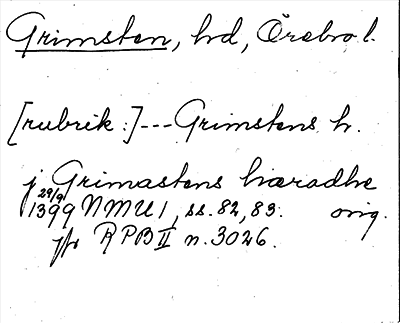 Grimsten, hd, Örebro l.
[rubrik:]---Grimstens h.
j Grimastens hæradhe
29/9 1399 NMU 1, ss. 82, 83. orig.
jfr RPB II n. 3026.